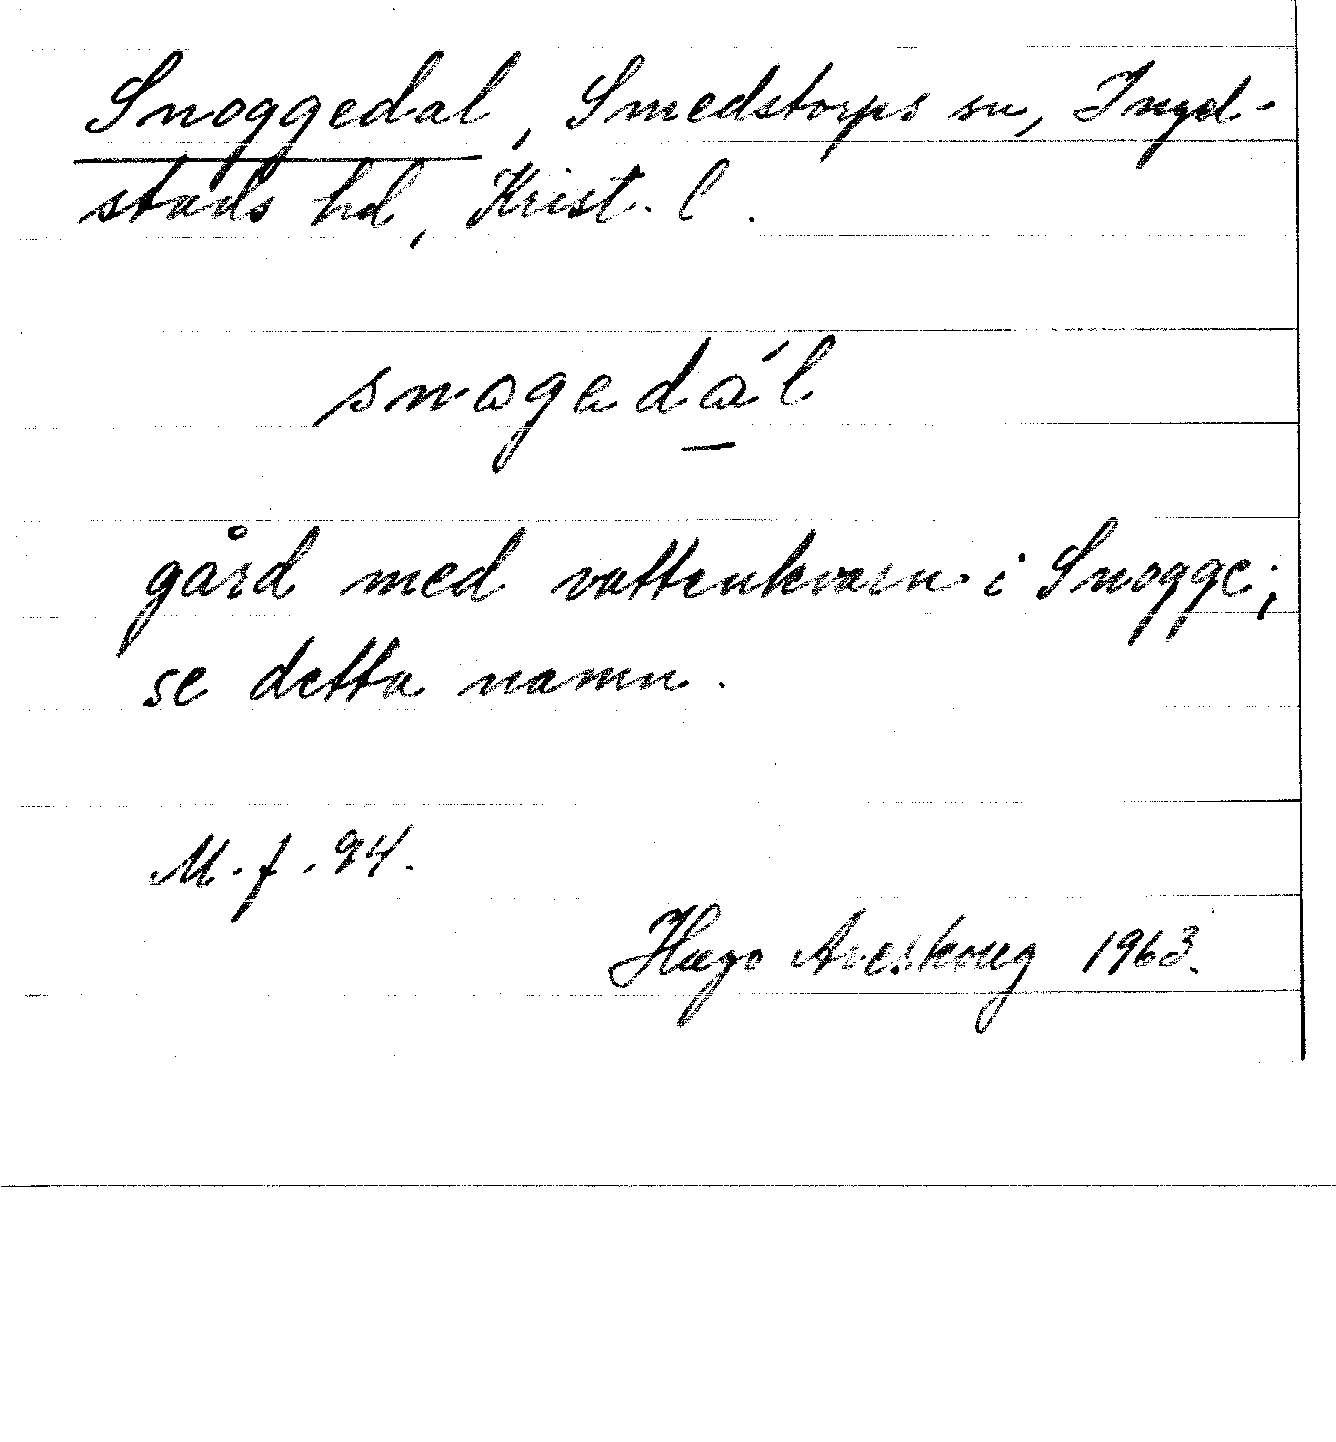 Snoggedal, Smedstorps sn, Ingel-
stads hd, Krist. l.
snogedál
gård med vattenkvarn i Snogge;
se detta namn.
M. f. 94.
Hugo Areskoug 1963.